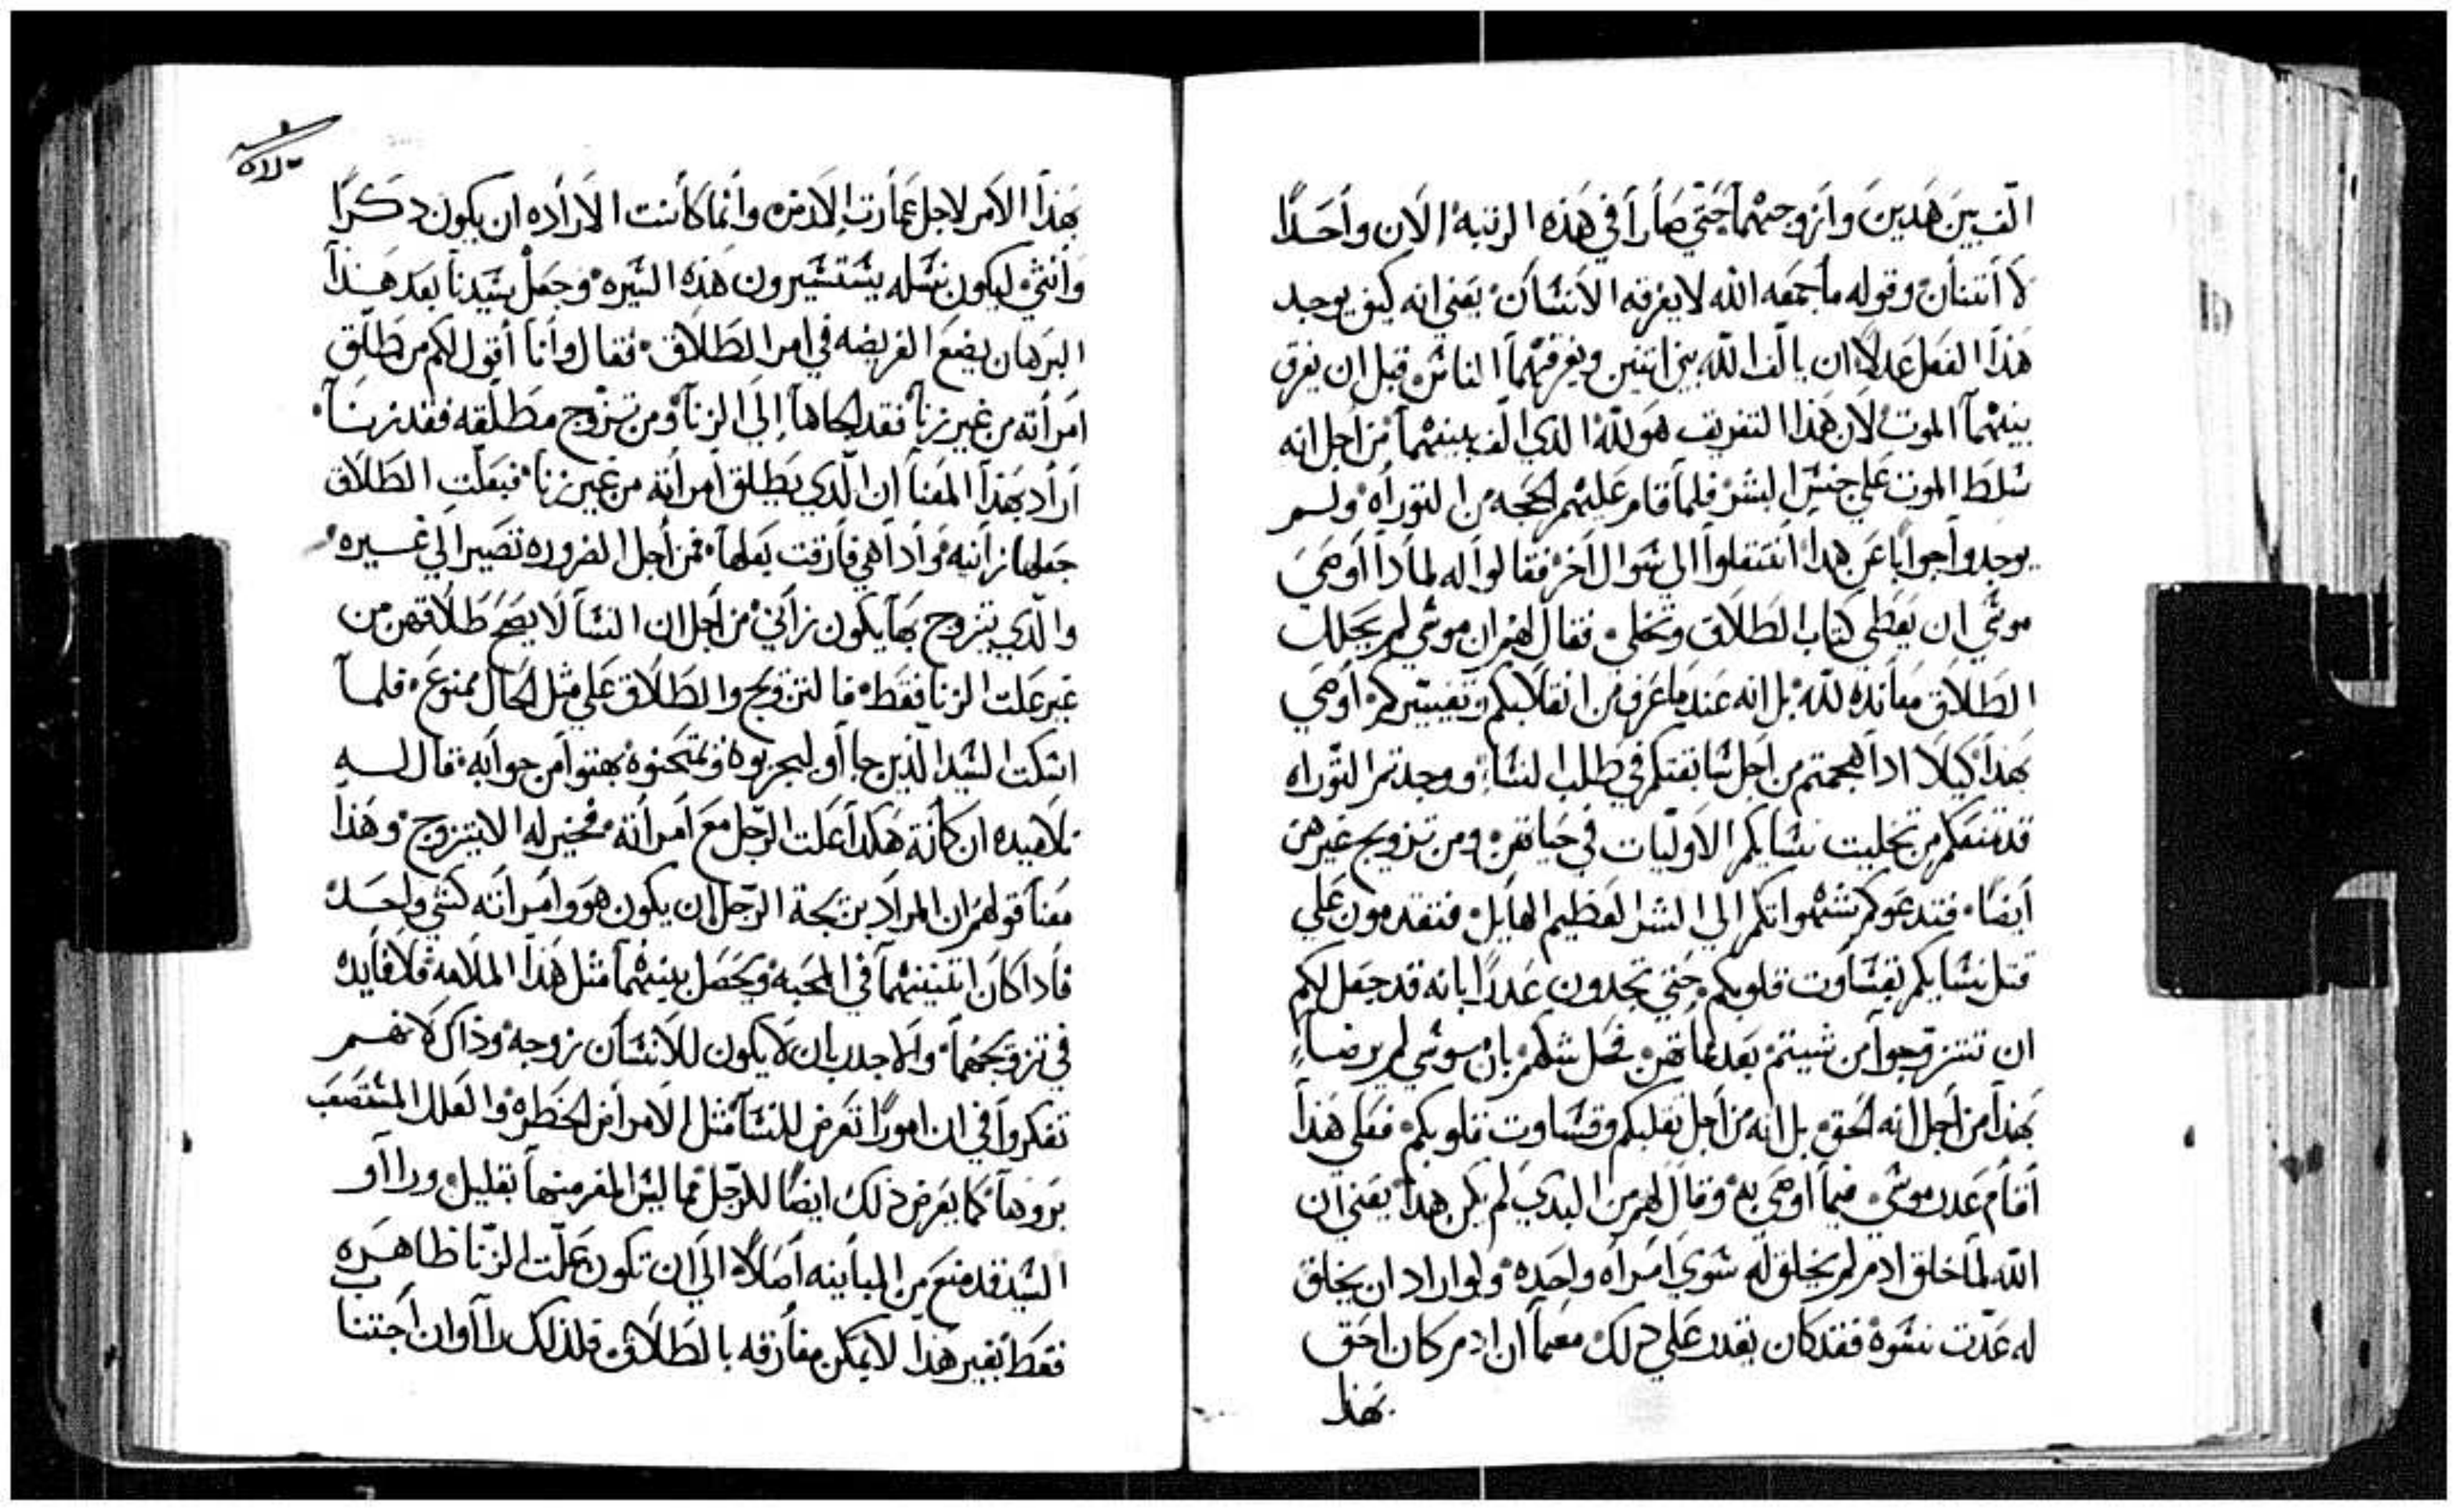 الف بين هدين وازوجتهما حتي صارا في هذه الرتبه الان واحدًا
لا أتنان وقوله ما جمعه الله لا يفرقه الانسان يعني انه كيف يوجد
هذا الفعل عدلا ان يالف الله بين اتنين ويفرقهما الناس قبل ان يفرق
بينهما الموت لان هذا التفريق هو لله الدي الف بينهما من اجل انه
سلط الموت علي جنس البشر فلما قام عليهم الحجه من التوراه ولم
يوجدوا جوابًا عن هدا انتقلوا الي سوال اخر فقالوا له لمادا أوصي
موسي ان يعطي كتاب الطلاق وتخلي فقال لهم ان موسي لم يجعل
الطلاق معانده لله بل انه عندما عرف من انقلابكم وتغييركم أوصي
بهذا كيلا ادا هجمتم من اجل شا بقتكم في طلب النسا ووجدتم التوراه
قد منعكم من تخليت نسايكم الاوليات في حياتهن ومن تزويج غيرهن
أيضًا فتدعوكم شهواتكم الي الشر العظيم الهايل فتقدمون علي
قتل نسايكم بقساوت قلوبكم حتي تجدون عدرًا بانه قد جعل لكم
ان تتزوجوا من شيتم بعد مماتهن فحل شكهم بان موسي لم يرضا
بهذا من أجل انه الحق بل انه من اجل تقلبكم وقساوت قلوبكم فعلي هذا
أقام عدر موسي فيما أوصي به وقال لهم من البدي لم يكن هدا يعني ان
الله لما خلق ادم لم يخلق له سوي امراه واحده ولو اراد ان يخلق
له عدت نسوه فقد كان يقدر علي دلك معما ان ادم كان احق
بهذا
بهذا الامر لاجل عمارت الارض وانما كانت الاراده ان يكون دكرًا
وانثي ليكون نسله يستسيرون هذه السيره وجعل سيدنا بعد هذا
البرهان يضع الفريضه في امر الطلاق فقال وأنا أقول لكم من طلق
امراته من غير زنا فقد الجاها إلي الزنا ومن تزوج مطلقه فقد زنا
أراد بهذا المعنا ان الدي يطلق امراته من غير زنا فبعلت الطلاق
جعلها زانيه وادا هي فارقت بعلها فمن أجل الضروره تصير الي غيره
والدي يتزوج بها يكون زاني من اجل ان النسا لا يصح طلاقهن من
غير علت الزنا فقط فالتزويج والطلاق علي مثل الحال ممنوع فلما
اسكت السيد الذين جاأو ليجربوه ويمتحنوه بهتوا من جوابه قال له
تلاميده ان كانة هكدا علت الرجل مع امراته فخير له الا يتزوج وهذا
معنا قولهم ان المراد بزيجة الرجل ان يكون هو وامراته كشي واحد
فادا كان اتنينهما في المحبه ويحصل بينهما مثل هذا الملامه فلا فايده
في تزويجهما والاجدر بان لا يكون للانسان زوجه وذاك لانهم
تفكروا في ان امورًا تعرض للنسا مثل الامراض الخطره والعلل المستصعب
بروها كما يعرض دلك ايضًا للرجل مما ليس المفر منها بقليل وراأو
السيد قد منع من المباينه اصلًا الي ان تكون علت الزنا ظاهره
فقط بغير هذا لا يمكن مفارقه بالطلاق فلذلك راأو ان اجتناب